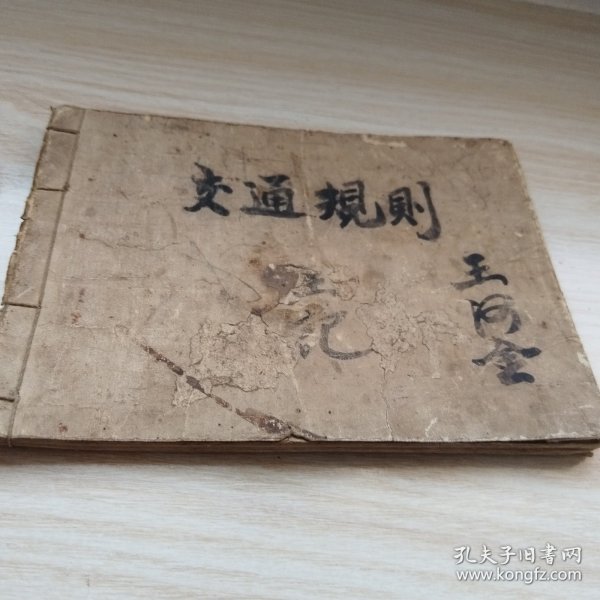 交通規則
記
王河金
孔夫子旧書网
www.kongfz.com